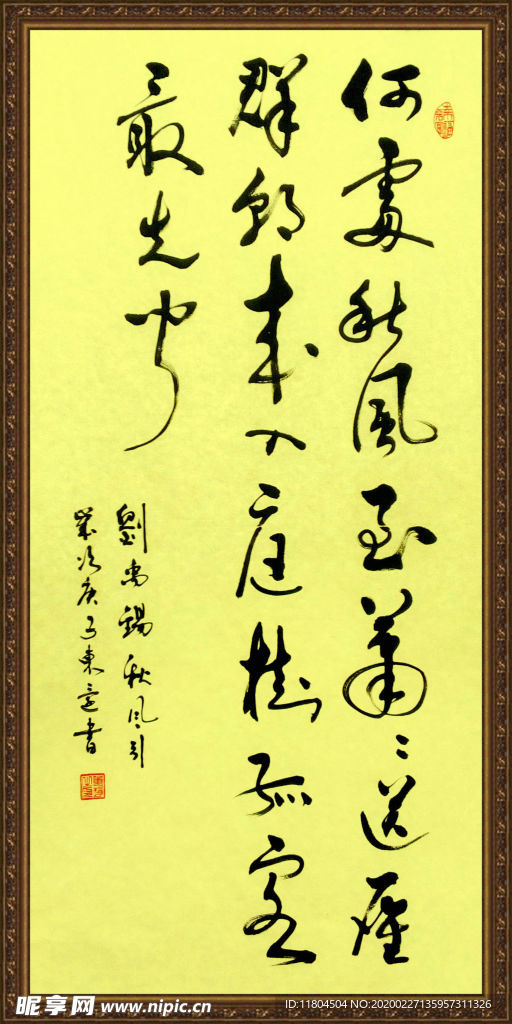 何處秋風至蕭〻送雁
群朝来入庭樹孤客
最先聞
劉禹錫秋風引
歲次庚子東書
昵享网 www.nipic.cn
ID:11804504 NO:20200227135957311326